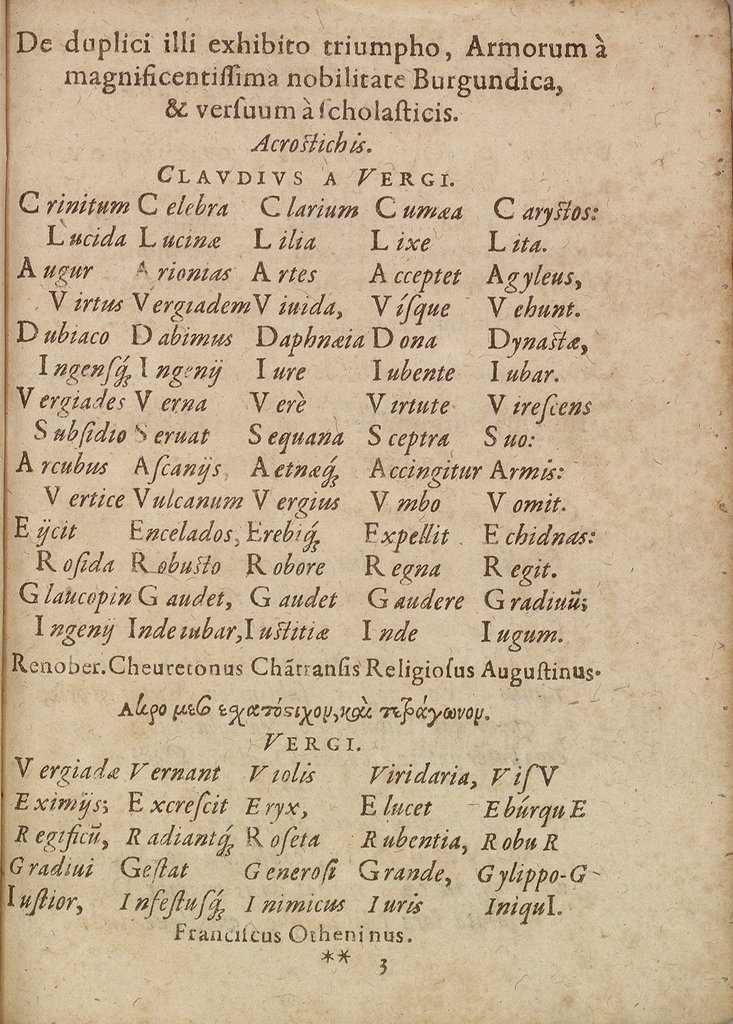 De duplici illi exhibito triumpho, Armorum à
magnificentiſſima nobilitate Burgundica,
& verſuum à ſcholaſticis.
Acroſtichis.
CLAVDIVS A VERGI.
Crinitum Celebra Clarium Cumæa Caryſtos:
Lucida Lucinæ Lilia Lixe Lita.
Augur Arionias Artes Acceptet Agyleus,
Virtus Vergiadem Viuida, Víſque Vehunt.
Dubiaco Dabimus Daphnæia Dona Dynaſtæ,
Ingenſq́; Ingenij Iure Iubente Iubar.
Vergiades Verna Verè Virtute Vireſcens
Subſidio Seruat Sequana Sceptra Suo:
Arcubus Aſcanijs Aetnæq́; Accingitur Armis:
Vertice Vulcanum Vergius Vmbo Vomit.
Eijcit Encelados, Erebiq́; Expellit Echidnas:
Roſida Robuſto Robore Regna Regit.
Glaucopin Gaudet, Gaudet Gaudere Gradiuū;
Ingenij Inde iubar, Iuſtitiæ Inde Iugum.
Renober. Cheuretonus Chãttanſis Religioſus Auguſtinus.
VERGI.
Vergiadæ Vernant Violis Viridaria, ViſV
Eximijs; Excreſcit Eryx, Elucet EbúrquE
Regificū, Radiantq́; Roſeta Rubentia, RobuR
Gradiui Geſtat Generoſi Grande, Gylippo-G
Iuſtior, Infeſtuſq́; Inimicus Iuris IniquI.
Franciſcus Otheninus.
** 3